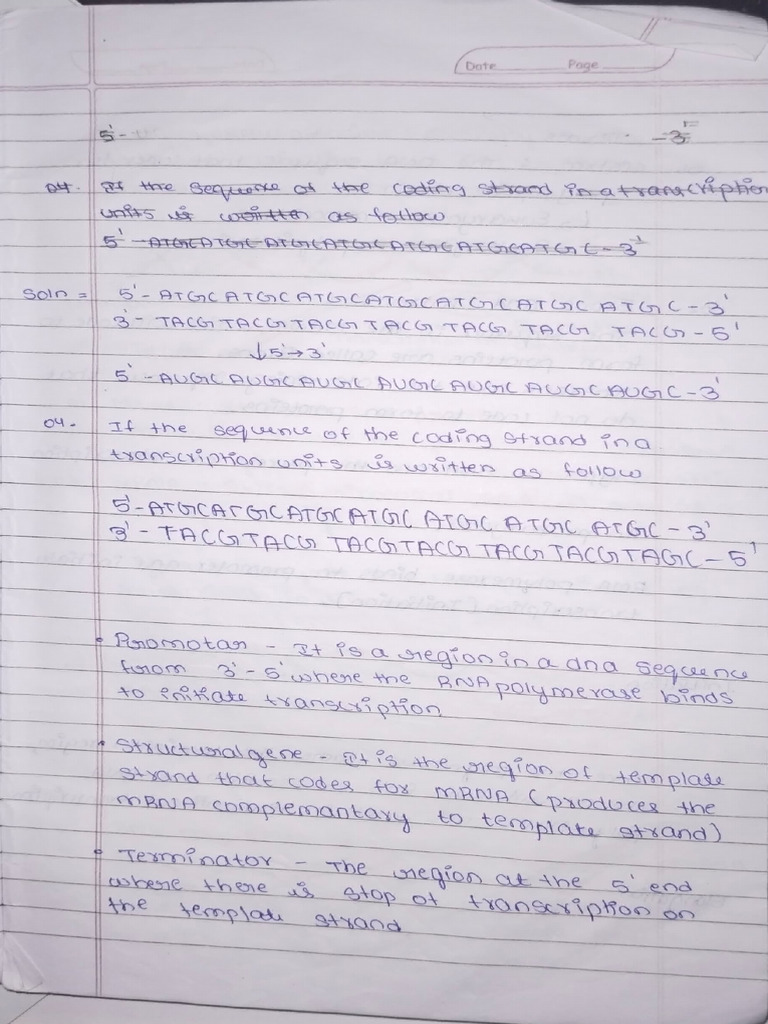 Date Page
5' - - 3'
04. If the sequence of the coding strand in a transcription
units is written as follow
5' - ATGCATGC ATGCATGC ATGC ATGCATGC - 3'
Soln = 5' - ATGC ATGC ATGCATGC ATGC ATGC ATGC - 3'
3' - TACG TACG TACG TACG TACG TACG TACG - 5'
↓ 5' → 3'
5' - AUGC AUGC AUGC AUGC AUGC AUGC AUGC - 3'
04. If the sequence of the coding strand in a
transcription units is written as follow
5' - ATGCATGCATGCATGC ATGC ATGC ATGC - 3'
3' - TACGTACG TACGTACG TACGTACGTAGC - 5'
• Promotar - It is a region in a dna sequence
from 3' - 5' where the RNA polymerase binds
to initiate transcription
• Structural gene - It is the region of template
strand that codes for mRNA (produces the
mRNA complemantary to template strand)
• Terminator - The region at the 5' end
where there is stop of transcription on
the template strand